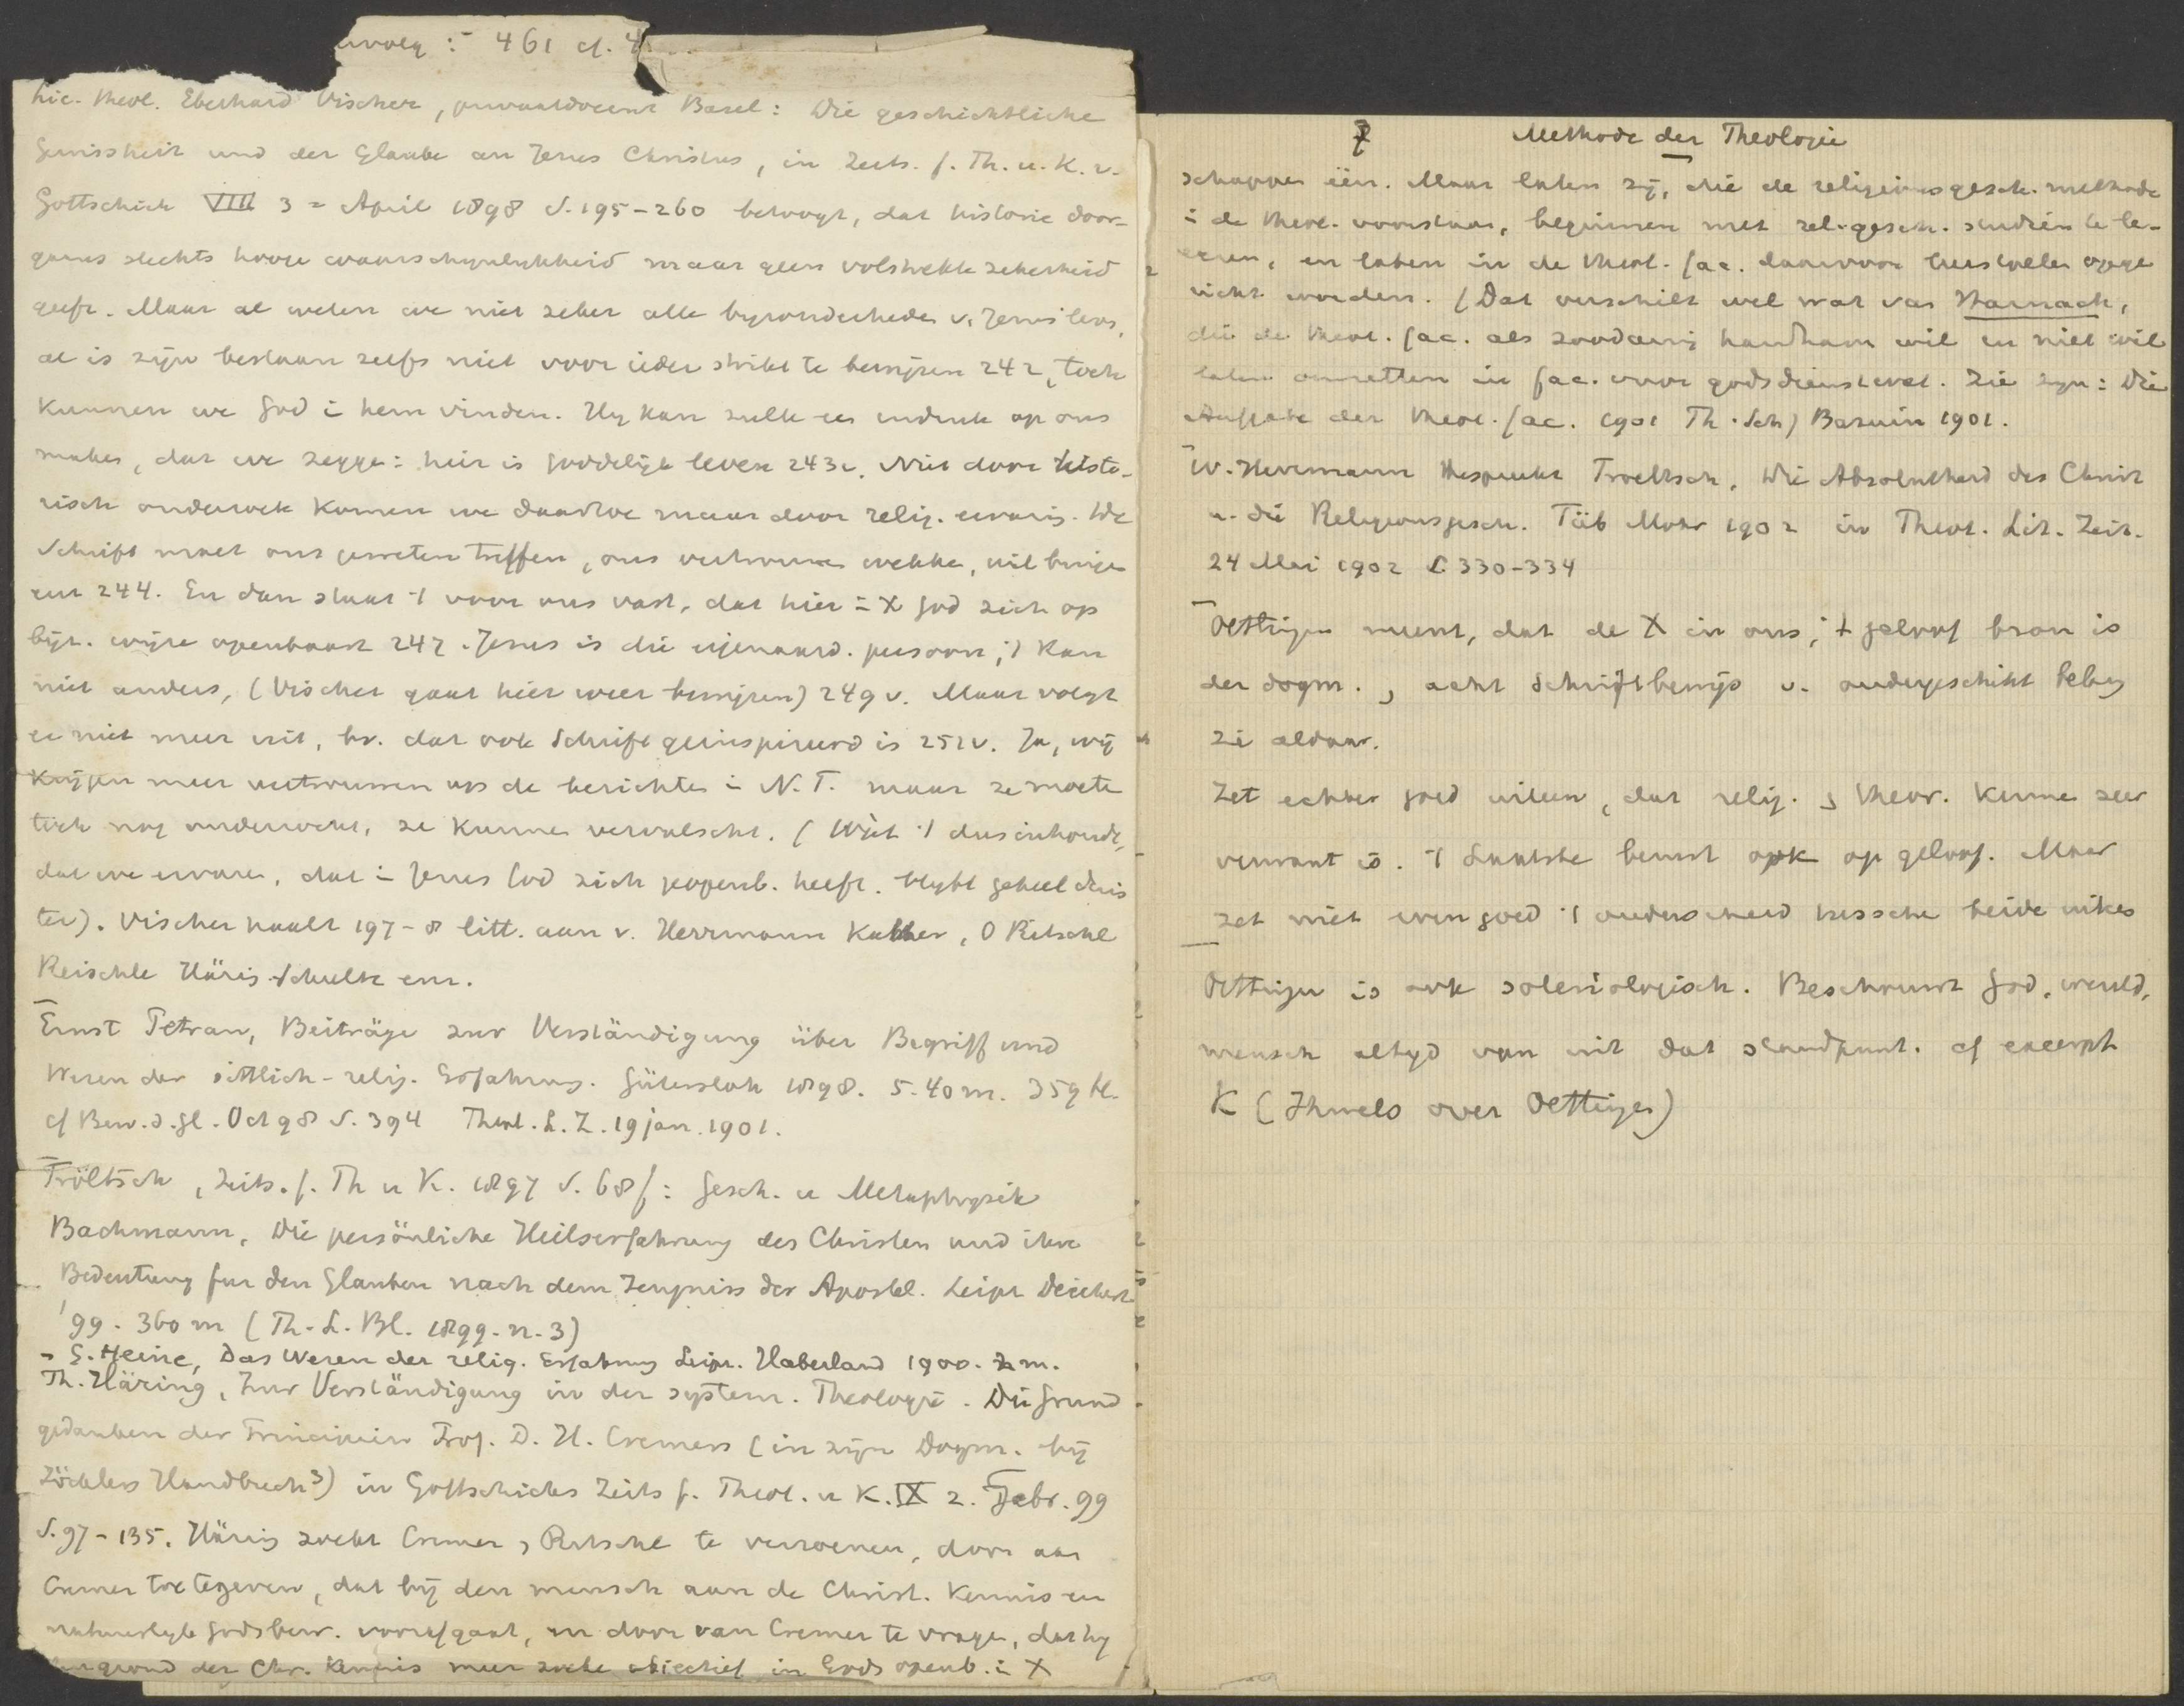 461 cf. 4
Lic. theol. Eberhard Vischer, privaatdocent Basel: Die geschichtliche
Gewissheit und der Glaube an Jesus Christus, in Zeits. f. Th. u. K. v.
Gottschick VIII 3 = April 1898 S. 195-260 betoogt, dat historie door-
gaans slechts hooge waarschynlykheid maar geen volstrekte zekerheid
geeft. Maar al weten we niet zeker alle byzonderheden v. Jezus' leven,
al is zijn bestaan zelfs niet voor ieder strikt te bewijzen 242, toch
kunnen we God i hem vinden. Hy kan zulk een indruk op ons
maken, dat we zeggen: hier is goddelijk leven 243v. Niet door histo-
risch onderzoek komen we daartoe maar door relig. ervaring. De
Schrift moet ons geweten treffen, ons vertrouwen wekken, uit
244. En dan staat 't voor ons vast, dat hier i X God zich op
bijz. wijze openbaart 247. Jezus is die eigenaard. persoon; 't kan
niet anders, (Vischer gaat hier weer bewijzen) 249v. Maar volgt
er niet meer uit, bv. dat ook Schrift geinspireerd is 252v. Ja, wij
krijgen meer vertrouwen op de berichten i N.T. maar ze moeten
toch nog onderzocht, ze kunnen vervalscht. (Wat 't dus inhoudt,
dat we ervaren, dat i Jezus God zich geopenb. heeft. blyft geheel duis
ter). Vischer haalt 197-8 litt. aan v. Herrmann Kähler, O Ritschl
Reischle Häring Schultz enz.
Ernst Petran, Beiträge zur Verständigung über Begriff und
Wesen der sittlich-relig. Erfahrung. Gütersloh 1898. 5.40 m. 359 bl.
cf Bew. d. Gl. Oct 98 S. 394 Theol. L. Z. 19 jan. 1901.
Tröltsch, Zeits. f. Th u K. 1897 S. 68f: Gesch. u Metaphysik
Bachmann, Die persönliche Heilserfahrung des Christen und ihre
Bedeutung fur den Glauben nach dem Zeugniss der Apostel. Leipz Deichert
'99. 360 m (Th. L. Bl. 1899. n. 3)
- G. Heine, Das Wesen der relig. Erfahrung Leipz. Haberland 1900. m.
Th. Häring, Zur Verständigung in der system. Theologie. Die Grund
gedanken der Principien Prof. D. H. Cremers (in zijn Dogm. bij
Zöcklers Handbuch 3) in Gottschicks Zeits f. Theol. u K. IX 2. Febr. 99
S. 97-135. Häring zoekt Cremer, Ritschl te verzoenen, door aan
Cremer toe te geven, dat bij den mensch aan de Christ. kennis een
natuurlyk Godsbew. voorafgaat, en door van Cremer te vragen, dat hy
grond der Chr. kennis meer zoeke objectief in Gods openb. i X
7 Methode der Theologie
schappen één. Maar laten zij, die de religionsgesch. methode
i de theol. voorstaan, beginnen met rel. gesch. studiën te le-
veren, en laten in de theol. fac. daarvoor leerstoelen opge
richt worden. (Dat verschilt wel wat van Harnack,
die de theol. fac. als zoodanig handhaven wil en niet wil
laten omzetten in fac. voor godsdienstwet. Zie zyn: Die
Aufgabe der theol. fac. 1901 Th. Sch) Bazuin 1901.
W. Herrmann bespreekt Troeltsch, Die Absolutheid des Christ
u. die Religionsgesch. Tüb Mohr 1902 in Theol. Lit. Zeit.
24 Mei 1902 S 330-334
Oettingen meent, dat de X in ons, 't geloof bron is
der dogm., acht Schriftbewijs v. ondergeschikt belang
zie aldaar.
Zet echter goed uiteen, dat relig. theor. kennis zeer
verwant is. 't Laatste berust ook op geloof. Maar
zet niet even goed 't onderscheid tusschen beide uiteen
Oettingen is ook soteriologisch. Beschouwt God, wereld,
mensch altyd van uit dat standpunt. cf excerpt
K (Ihmels over Oettingen)